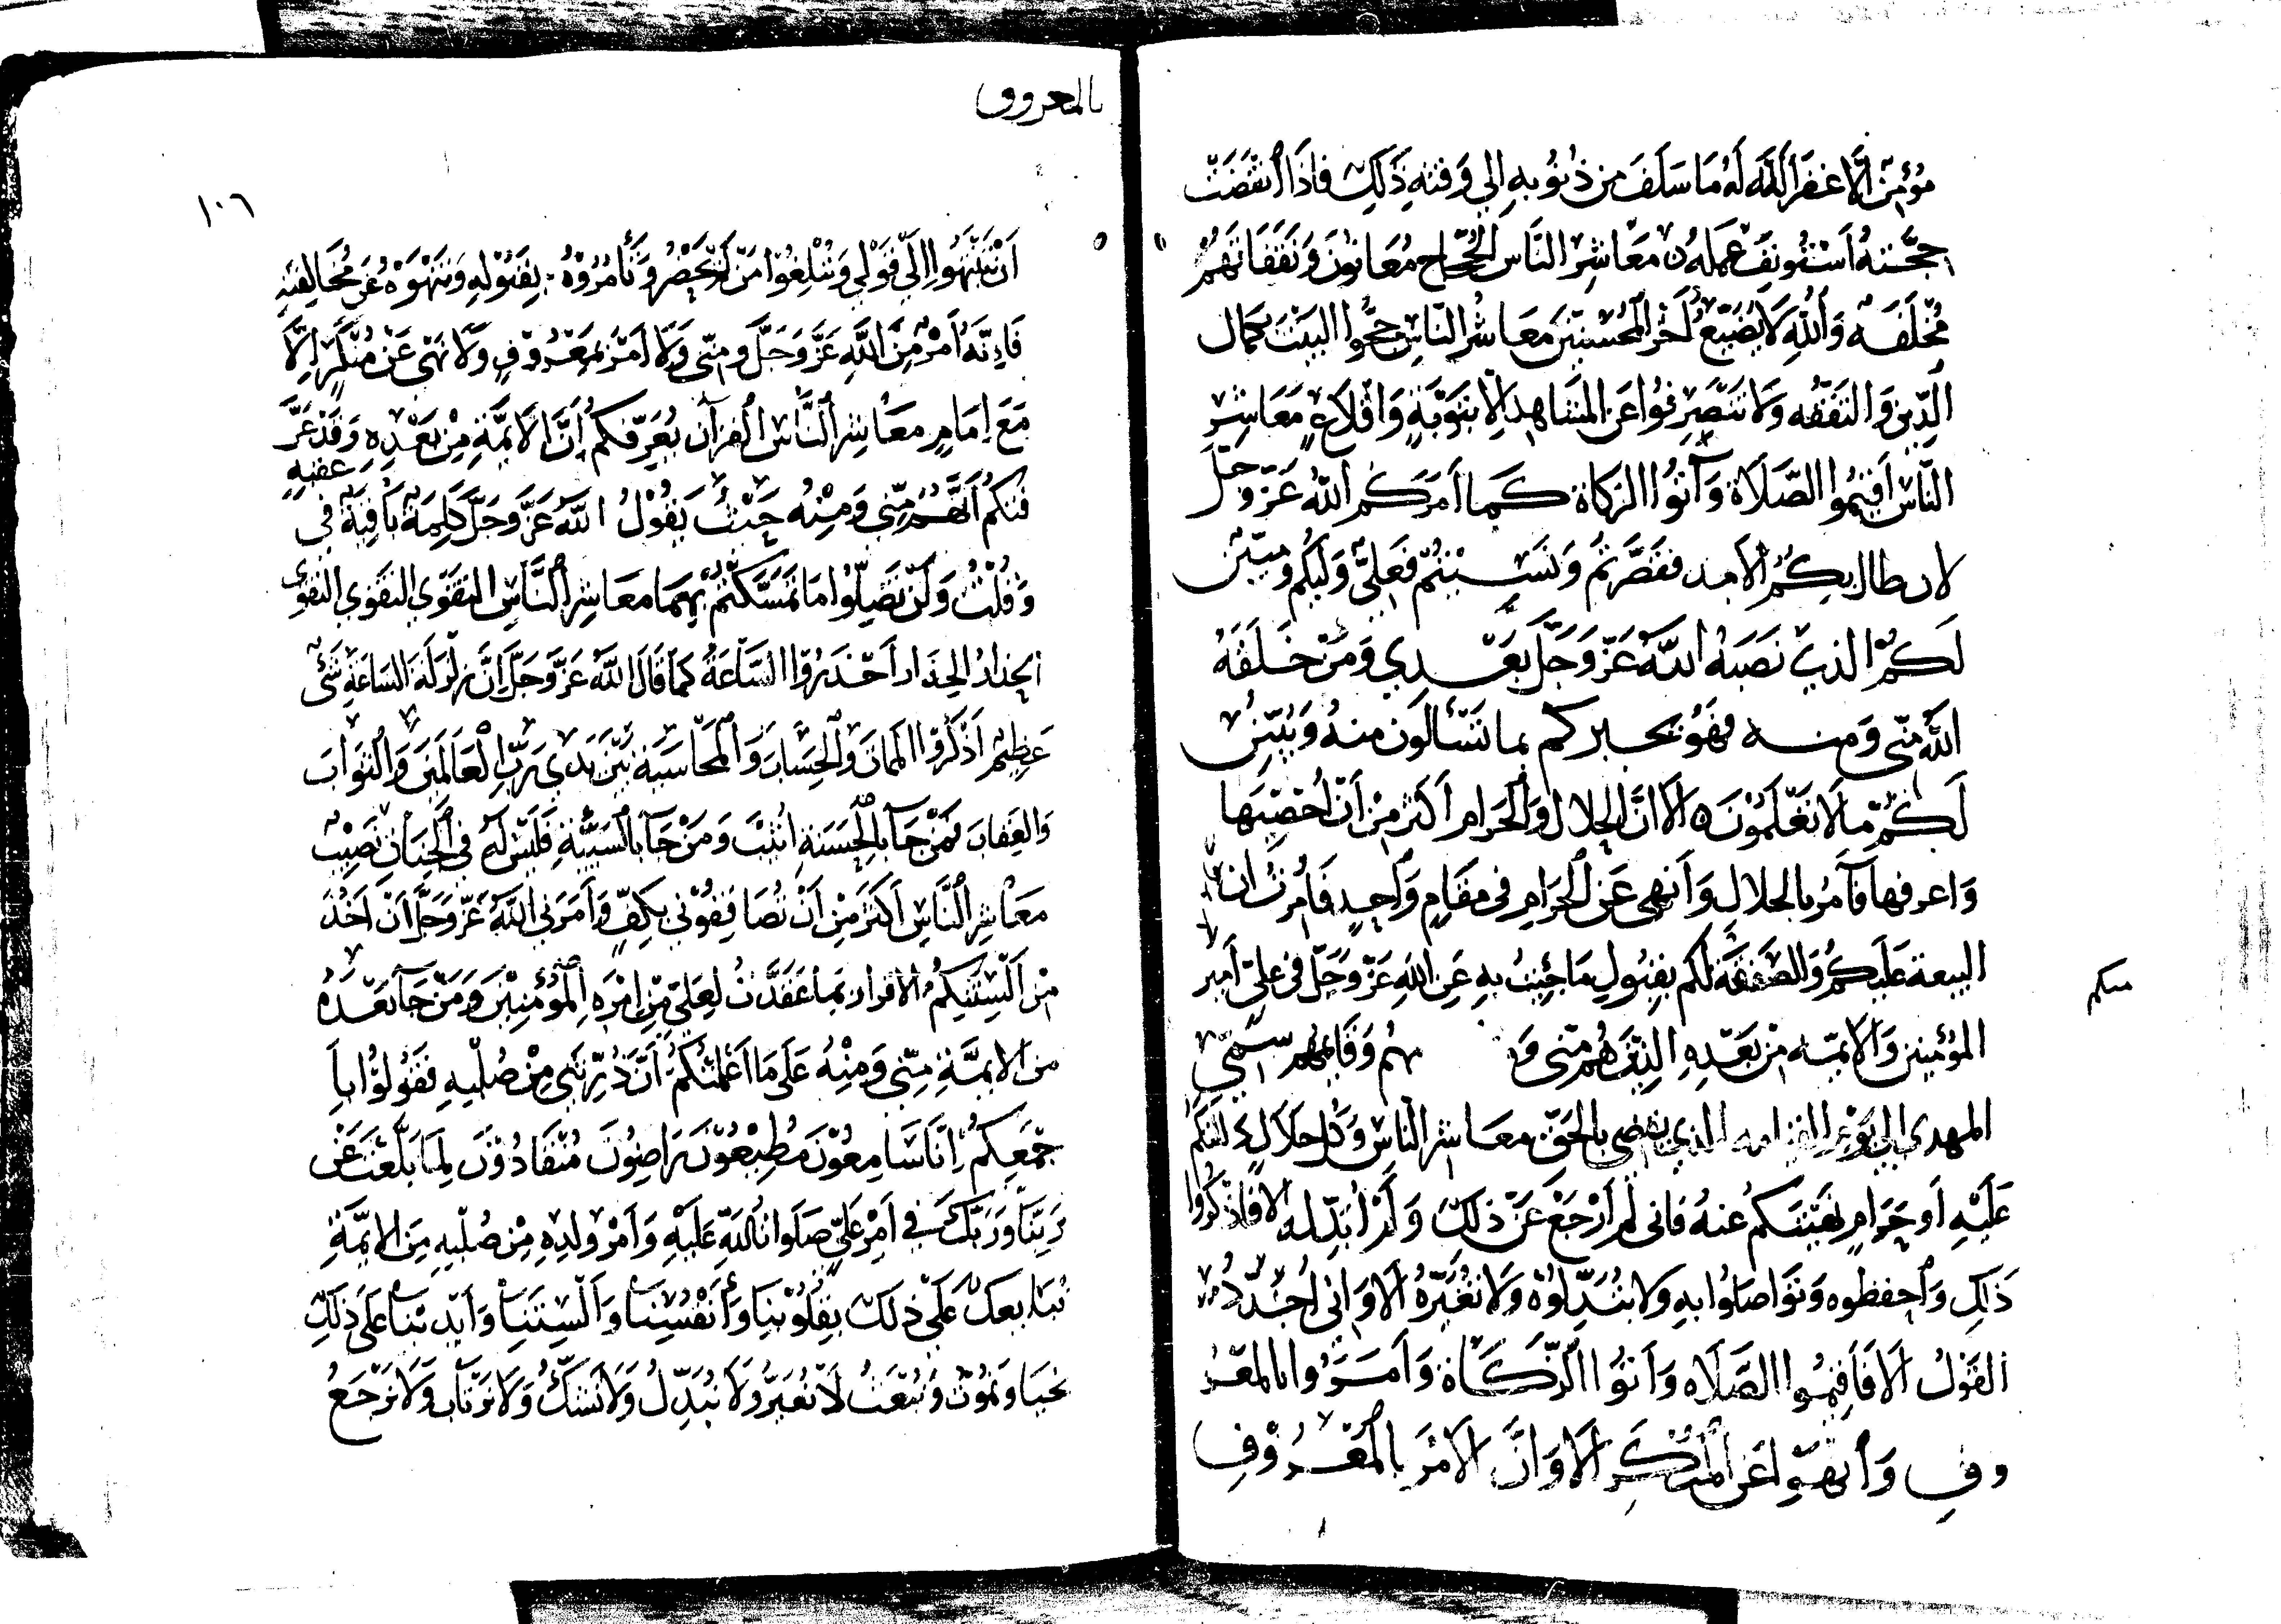 مُؤْمِنٌ اِلَّا غَفَرَ اللَّهُ لَهُ مَا سَلَفَ مِن ذُنُوبِهِ اِلي وَقتِهِ ذَلِكَ فَاِذَا انْقَضَتْ
حَجَّتهُ اُسْتُونِفَ عَمَلُهُ مَعَاشِرَ النَّاسِ الحُجَّاج مُعَانُونَ وَنَفَقَاتهُمْ
مُخْلَفَه وَاللَّهُ لَا يُضِيْعُ اَجْرَ المُحْسِنِيْنَ مَعَاشِرَ النَّاسِ حِجُّوا البَيْتَ بِكَمَال
الدِّينِ وَالتَفَقُّه وَلَا تَنْصَرِفُوا عَنِ المَشَاهِدِ اِلَّا بِتَوْبَةٍ وَاِقْلَاعٍ مَعَاشِرَ
النَّاسِ اَقِيْمُوا الصَّلَاة وَآتُوا الزكاة كَمَا اَمَرَكُم اللَّهُ عَزَّ وَجَلَّ
لان طال بِكُمُ الاَمد فَقَصَّرْتُم وَنَسِيْتُمْ فَعَلِيٌّ وَليُكُم وَمُبَيِّنٌ
لَكُمُ الذي نَصَبَهُ اللَّهُ عَزَّ وَجَلَّ بَعْدِي وَمَنْ خَلَفَهُ
اللَّهُ مِنّي وَمنه فهُوَ يُخبركم بما تَسْأَلُونَ منهُ وَيُبَيِّنُ
لَكُمْ مَا لَا تَعْلَمُوْنَ اَلَا اِنَّ الحلال وَالحَرام اَكثَر مِنْ اَنْ اُحْصِيَها
وَاعرفها فَآمُرُ بالحلالِ وَاَنهي عَنِ الحَرَامِ في مقَامٍ وَاحِدٍ فَاُمِرْتُ ان
البيعة عَلَيكُمْ وَالصَفقَة لَكُم بِقبُولِ مَا جِئتُ بهِ عَنِ اللَّهِ عَزَّ وَجَلَّ في عَلِيٍّ اَمير
المؤمنين وَالايمّه مِنْ بَعْدِهِ الذِيْنَ هُمْ مِنّي وَ هُم وَقَايمُهم سَمِيّي
المهدي الي يَوْمِ الذي يقضي بالحَقِّ معَاشرَ الناسِ وَكُل حَلَالٍ
عَلَيْهِ اَو حَرَامٍ نَهَيْتكُم عَنهُ فَاني لَم اَرْجَعْ عَنْ ذلِكَ وَلَمْ اُبَدِّلهُ اَلا فَاذْكُرُوا
ذَلِكَ وَاحفظوه وَتَوَاصَوْا بهِ وَلَا تُبَدِّلُوْهُ وَلَا تُغَيِّرُهُ اَلَا وَاِني اُجَدِّدُ
القَوْلَ اَلَا فَاَقِيْمُوا الصَّلَاه وَآتُوا الزَّكَاة وَاْمُرُوا بالمَعْرُ
وفِ وَانهَوْا عَنِ المُنْكَرِ اَلَا وَاِنَّ الاَمْرَ بِالمَعْرُوْفِ
منكم
بالمعروف
١٠٦
اَنْ تَنْتَهُوا اِلَي قَوْلِي وَتُبْلِغُوْا مَن لَم يَحْضُرْ وَتَأْمُرُوْهُ بِقَبُوْلِهِ وَتَنْهَوْهُ عَن مُخَالِفَتِهِ
فَاِنَّهُ اَمْرٌ مِنَ اللَّهِ عَزَّ وَجَلَّ وَمِنّي وَلَا اَمْرَ بِمَعْرُوْفٍ وَلَا نَهْيَ عَنْ مُنْكَرٍ اِلَّا
مَعَ اِمَامٍ مَعَاشِرَ النَّاسِ القُرآن يُعَرِّفكُم اَنَّ الاَيمَّةِ مِنْ بَعْدِهِ وَقَدْ عَرَّ
عقبه
فتكُم اَنَّهُمْ مِنِّي وَمِنْهُ حَيْثُ يَقُوْلُ اللَّهُ عَزَّ وَجَلَّ كَلِمَةً بَاقِيَةً في
وَقُلْتُ وَلَن تَضِلُّوْا مَا تَمَسَّكْتُمْ بِهِمَا مَعَاشِرَ النَّاسِ التَقْوَي التَقْوَي التَقْوَي
الحِذَارَ الحِذَار اَحْذَرُوا السَّاعَةَ كَمَا قَالَ اللَّهُ عَزَّ وَجَلَّ اِنَّ زَلْزَلَةَ السَاعَةِ شَيْءٌ
عَظِيْمٌ اُذْكُرُوْا المَمَات وَالحِسَابَ وَالمُحَاسَبَة بَيْنَ يَدَي رَبِّ العَالَمِيْنَ وَالثَوَابَ
وَالعِقَابَ فَمَنْ جَآءَ بِالحَسَنَةِ اُثِيْبَ وَمَنْ جَآءَ بِالسَيِّئَةِ فَلَيْسَ لَهُ في الجِنَانِ نَصِيْبٌ
مَعَاشِرَ النَّاسِ اَكثَرُ مِنْ اَنْ تُصَافِقُوْني بِكَفٍّ وَاَمَرَني اللَّهُ عَزَّ وَجَلَّ اَنْ اَخُذَ
مِنْ اَلْسِنَتِكُم الاقرار بِمَا عَقَدْتُ لِعَلِيٍّ مِنْ اِمْرَهِ المُؤْمِنِيْنَ وَمَنْ جَآءَ بَعْدَهُ
منَ الايمَّةِ مِنِّي وَمِنْهُ عَلَي مَا اَعْلَمْتُكُمْ اَنَّ ذُرِّيَّتي مِنْ صُلْبِهِ فَقُوْلُوْا بِاَ
جْمَعِكُمْ اِنَّا سَامِعُوْنَ مُطِيْعُوْنَ رَاضِوُنَ مُنْقَادُوْنَ لِمَا بَلَّغْتَ عَنْ
رَبِّنَا وَرَبِّكَ في اَمْرِ عَلِيٍّ صَلَوَاتُ اللَّهِ عَلَيْهِ وَاَمْرِ ولدِهِ مِنْ صُلْبِهِ مِنَ الايمَّةِ
نُبَايعكَ عَلَي ذلِكَ بِقُلُوْبِنَا وَأَنْفُسِنَا وَاَلْسِنَتِنَا وَاَيْدِيْنَا عَلَي ذلِكَ
نحْيَا وَنَمُوْتُ وَنُبْعَثُ لَا نُغَيِّرُ وَلَا نُبَدِّلُ وَلَا نَشُكُّ وَلَا نَرْتَابُ وَلَا نَرْجَعُ